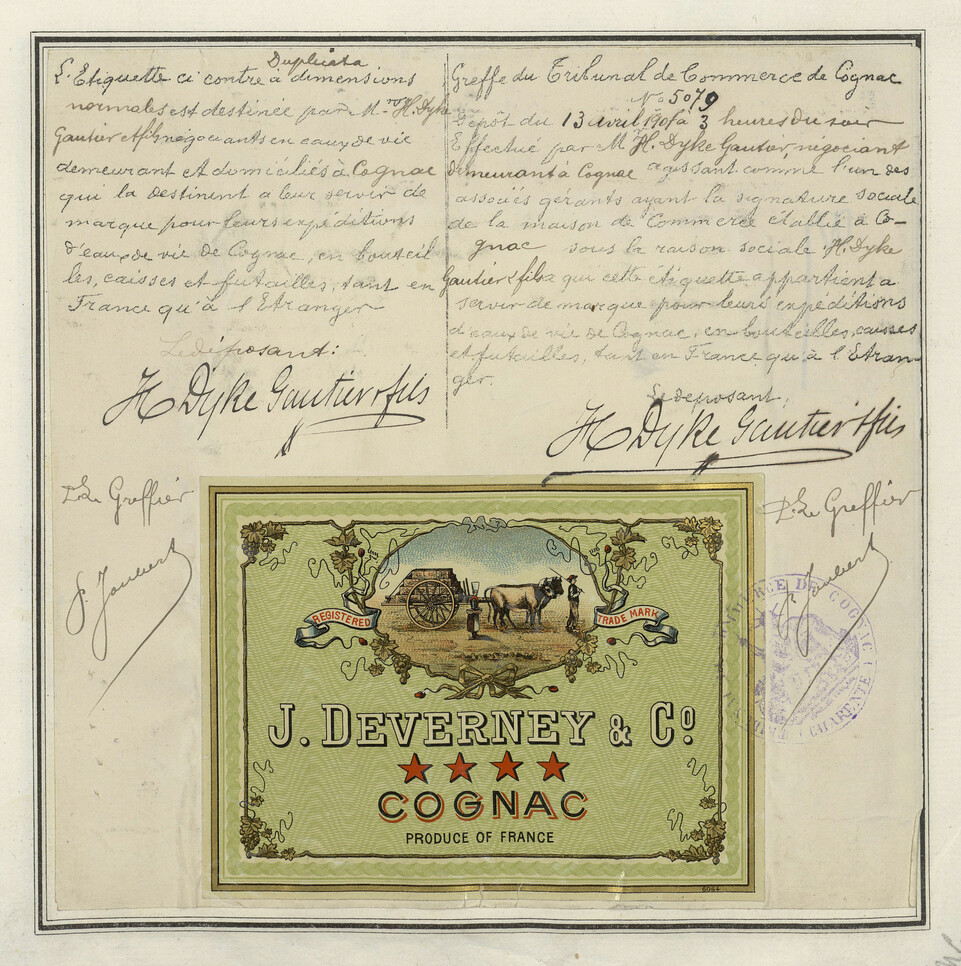 Duplicata
L'Etiquette ci contre à dimensions
normales est destinée par Mr H. Dyke
Gautier & fils négociants en eaux de vie
demeurant et domiciliés à Cognac
qui la destinent a leur servir de
marque pour leurs expéditions
d'eaux de vie de Cognac, en bouteil
les, caisses et futailles, tant en
France qu'à l'Etranger
Le déposant:
H Dyke Gautier & fils
P. Le Greffier
Greffe du Tribunal de Commerce de Cognac
No 5079
Depôt du 13 avril 1907 à 3 heures du soir
Effectué par Mr H. Dyke Gautier, négociant
demeurant à Cognac agissant comme l'un des
associés gérants ayant la signature sociale
de la maison de Commerce établie à Co-
gnac sous la raison sociale H. Dyke
Gautier & fils a qui cette étiquette appartient a
servir de marque pour leurs expéditions
d'eaux de vie de Cognac, en bouteilles, caisses
et futailles, tant en France qu'à l'Etran-
ger.
Le deposant,
H Dyke Gautier & fils
P. Le Greffier
REGISTERED
TRADE MARK
J. DEVERNEY & Co
COGNAC
PRODUCE OF FRANCE
6064
DE COGNAC
CHARENTE